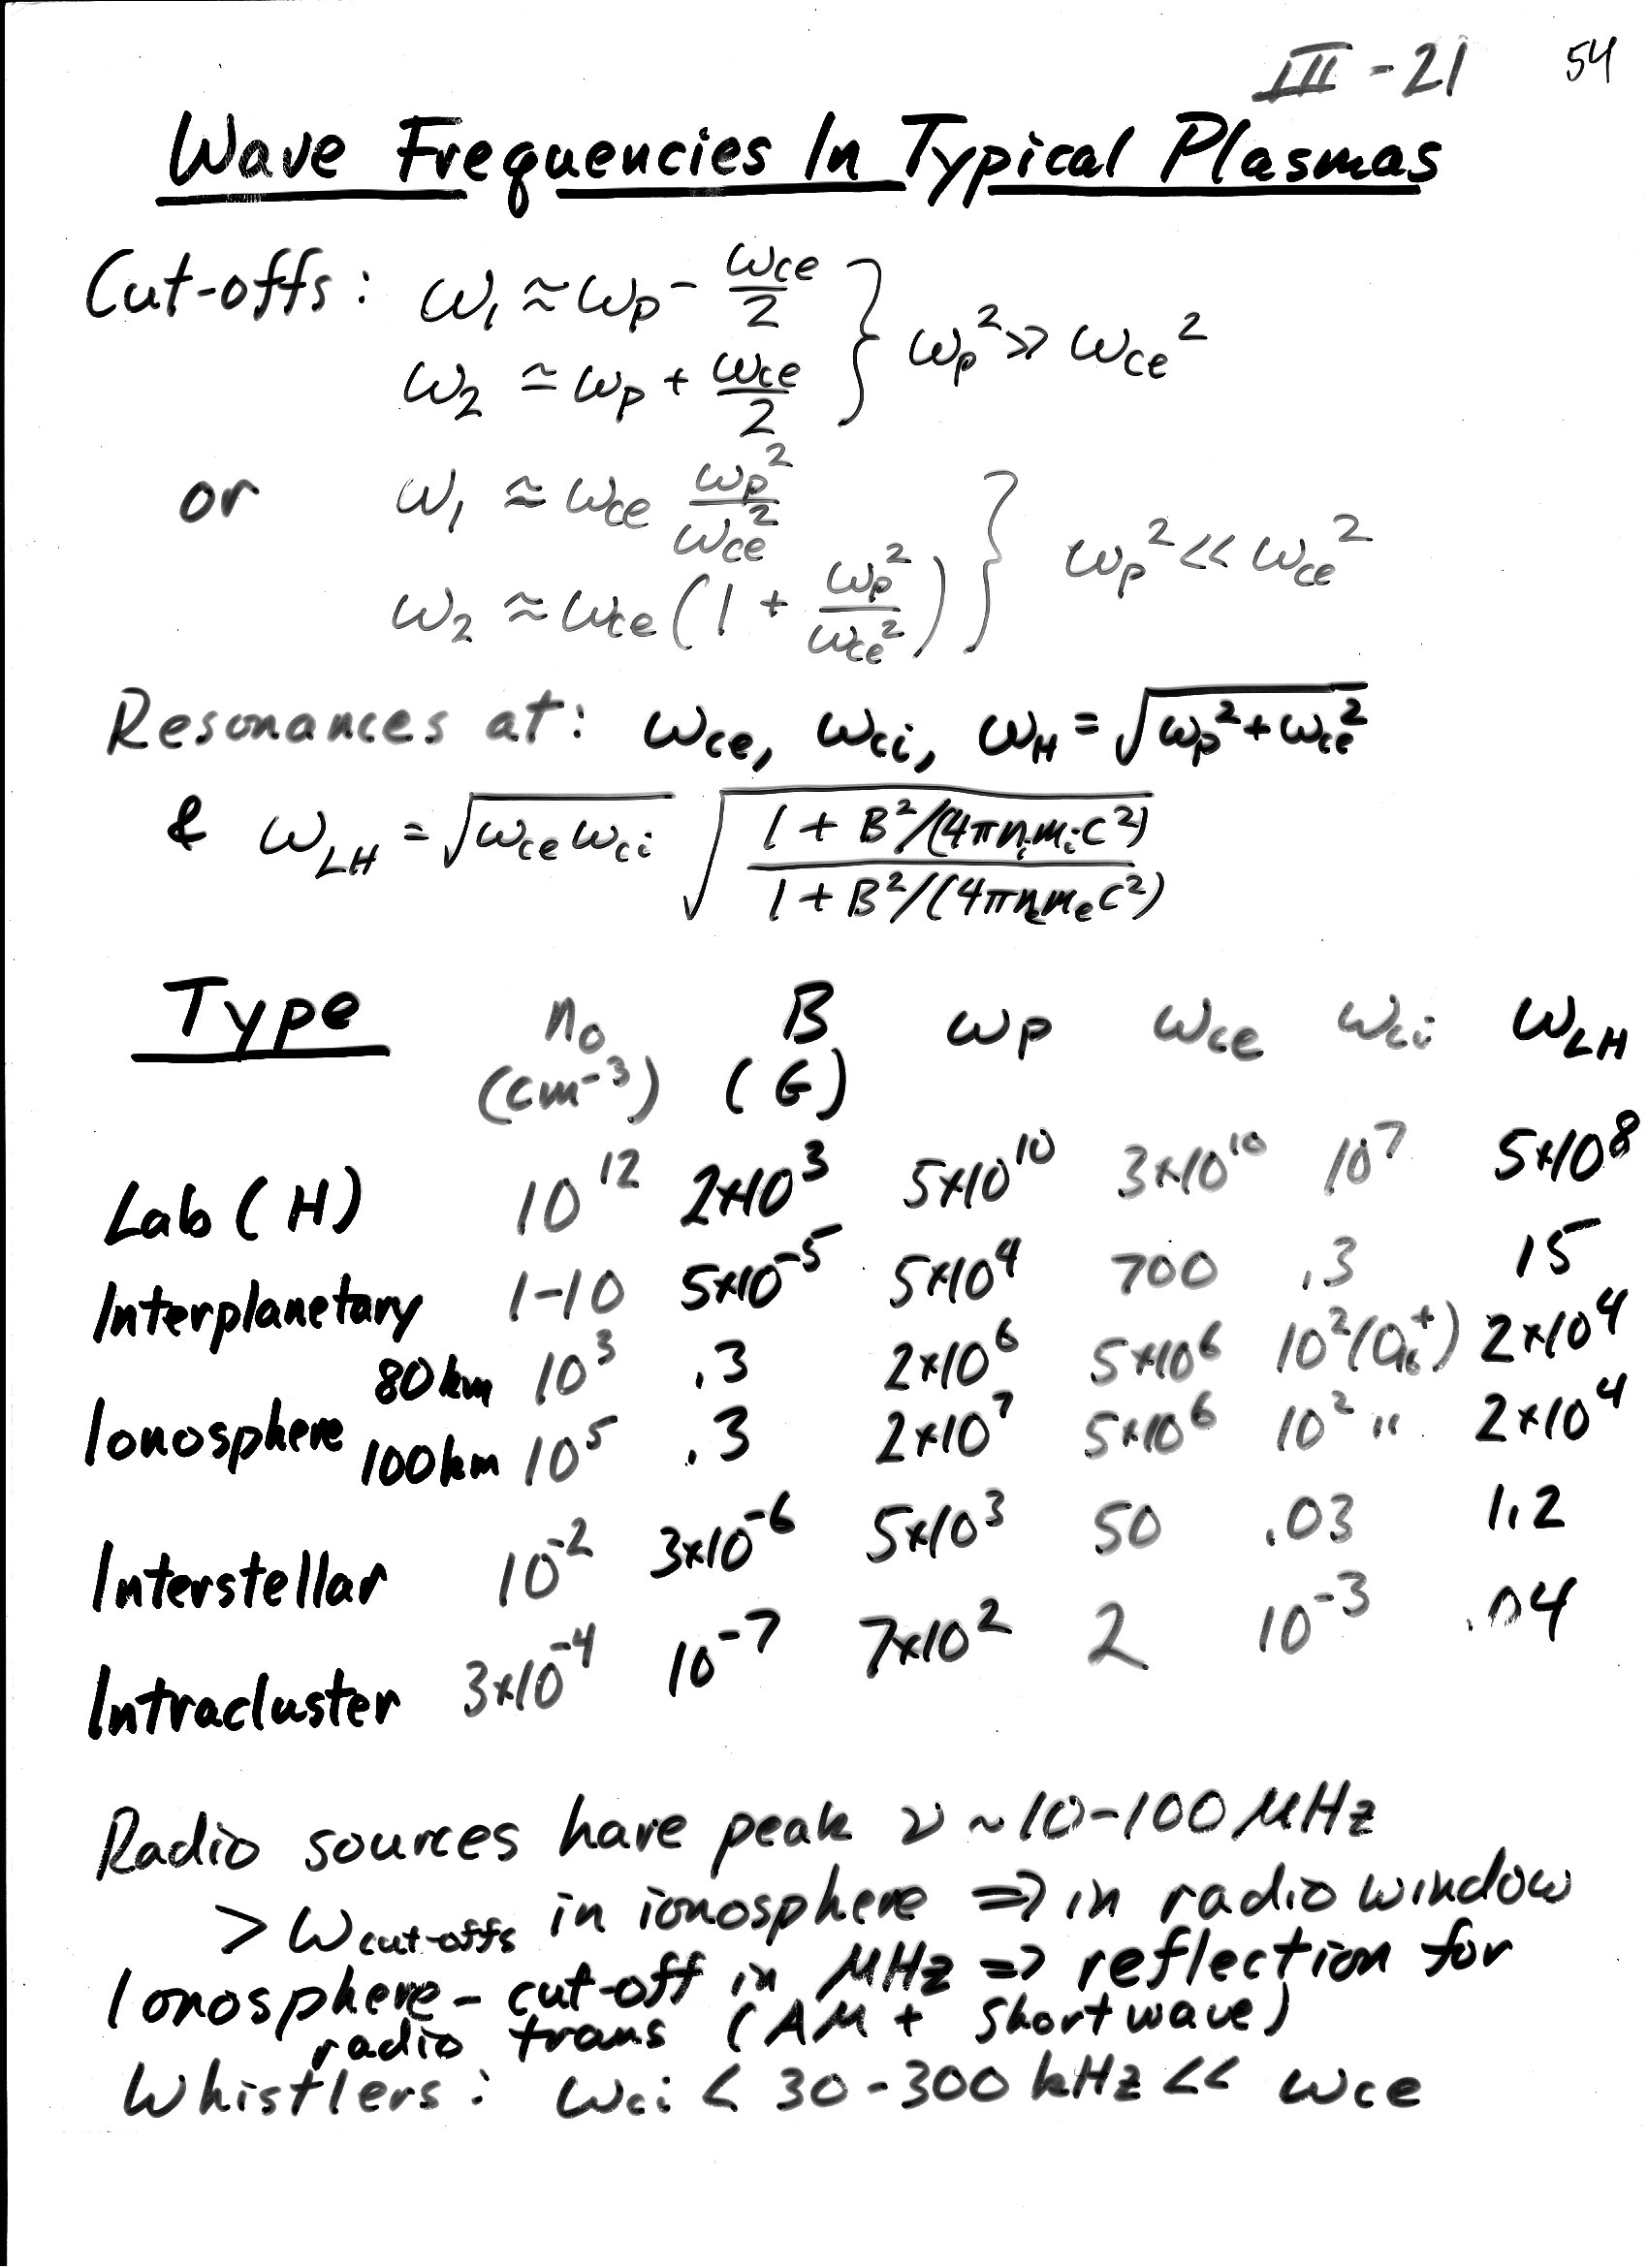 III - 21 54
Wave Frequencies In Typical Plasmas
Cut-offs: ω₁ ≈ ωp - ωce/2 } ωp² >> ωce²
ω₂ ≃ ωp + ωce/2
or ω₁ ≈ ωce ωp²/ωce² } ωp² << ωce²
ω₂ ≈ ωce (1 + ωp²/ωce²)
Resonances at: ωce, ωci, ωH = √(ωp² + ωce²)
& ωLH = √(ωce ωci) √((1 + B²/(4πnᵢmᵢc²))/(1 + B²/(4πnₑmₑc²)))
Type n₀ B ωp ωce ωci ωLH
(cm⁻³) (G)
Lab (H) 10¹² 2×10³ 5×10¹⁰ 3×10¹⁰ 10⁷ 5×10⁸
Interplanetary 1-10 5×10⁻⁵ 5×10⁴ 700 .3 15
80km 10³ .3 2×10⁶ 5×10⁶ 10² (O₁₆⁺) 2×10⁴
Ionosphere 100km 10⁵ .3 2×10⁷ 5×10⁶ 10² " 2×10⁴
Interstellar 10⁻² 3×10⁻⁶ 5×10³ 50 .03 1.2
Intracluster 3×10⁻⁴ 10⁻⁷ 7×10² 2 10⁻³ .04
Radio sources have peak ν ~ 10-100 MHz
> ωcut-offs in ionosphere => in radio window
Ionosphere - cut-off in MHz => reflection for
radio trans (AM + Shortwave)
Whistlers: ωci < 30-300 kHz << ωce